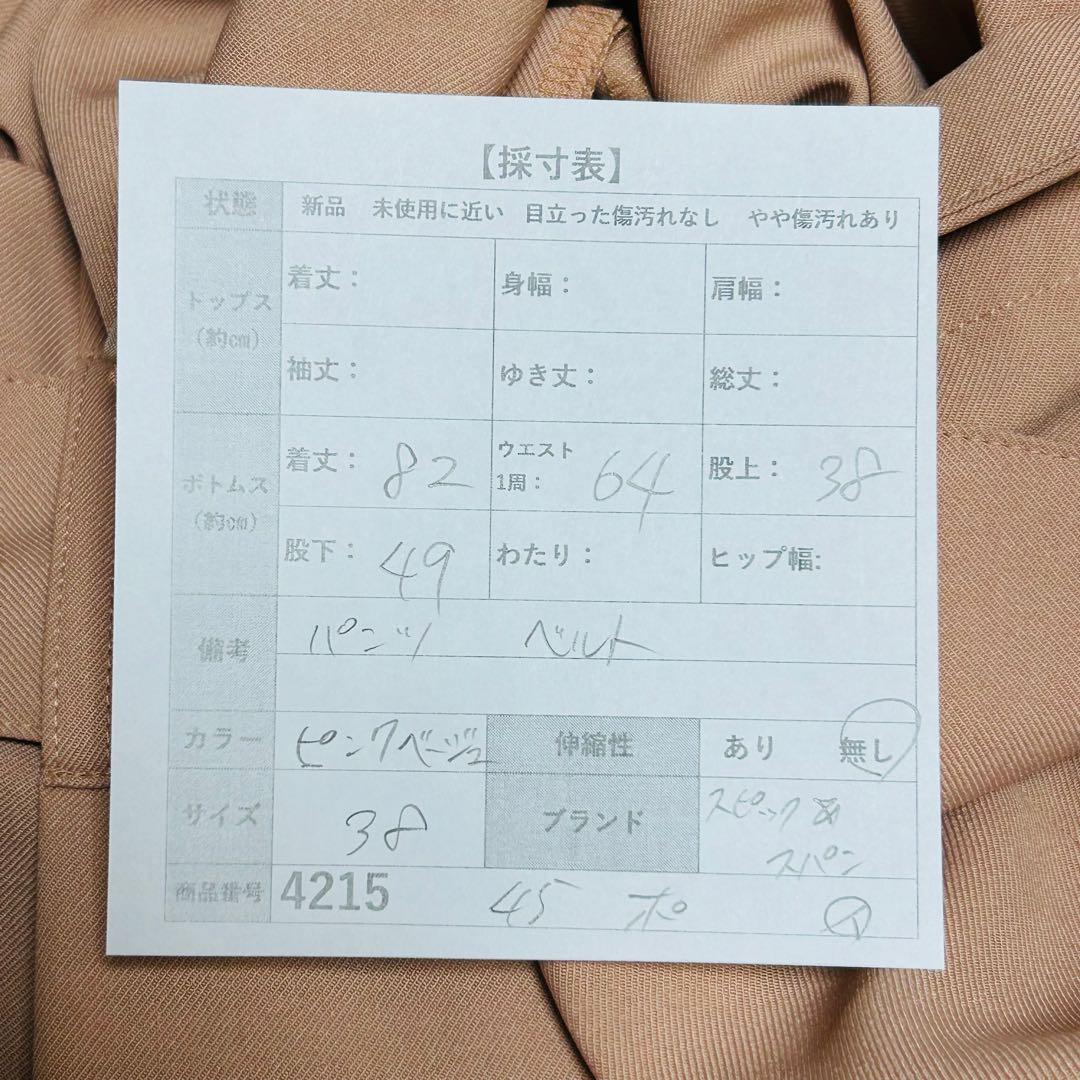 【採寸表】
状態 新品 未使用に近い 目立った傷汚れなし やや傷汚れあり
トップス
(約cm)
着丈： 身幅： 肩幅：
袖丈： ゆき丈： 総丈：
ボトムス
(約cm)
着丈： 82 ウエスト
1周： 64 股上： 38
股下： 49 わたり： ヒップ幅:
備考 パンツ ベルト
カラー ピンクベージュ 伸縮性 あり 無し
サイズ 38 ブランド スピック&
スパン
商品番号 4215 45 ポ